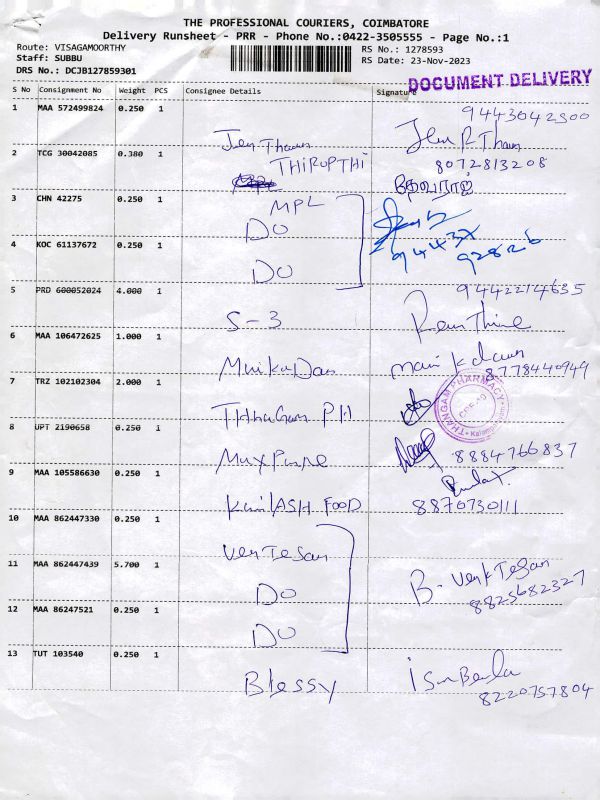 THE PROFESSIONAL COURIERS, COIMBATORE
Delivery Runsheet - PRR - Phone No.:0422-3505555 - Page No.:1
Route: VISAGAMOORTHY
Staff: SUBBU
DRS No.: DCJB127859301
RS No.: 1278593
RS Date: 23-Nov-2023
DOCUMENT DELIVERY
S No Consignment No Weight PCS Consignee Details Signature
1 MAA 572499824 0.250 1
9443042500
2 TCG 30042085 0.380 1 THIRUPTHI 8072813208
3 CHN 42275 0.250 1 MPL
DO
4 KOC 61137672 0.250 1 94437 92826
DO
5 PRD 600052024 4.000 1 9442214635
S-3
6 MAA 106472625 1.000 1
8778440949
7 TRZ 102102304 2.000 1
THANGAM PHARMACY
8 UPT 2190658 0.250 1
8884766837
9 MAA 105586630 0.250 1
FOOD 8870730111
10 MAA 862447330 0.250 1
VenTeSan
11 MAA 862447439 5.700 1
DO B. VenkTeSan
8825682327
12 MAA 86247521 0.250 1
DO
13 TUT 103540 0.250 1
Blessy
8220757804